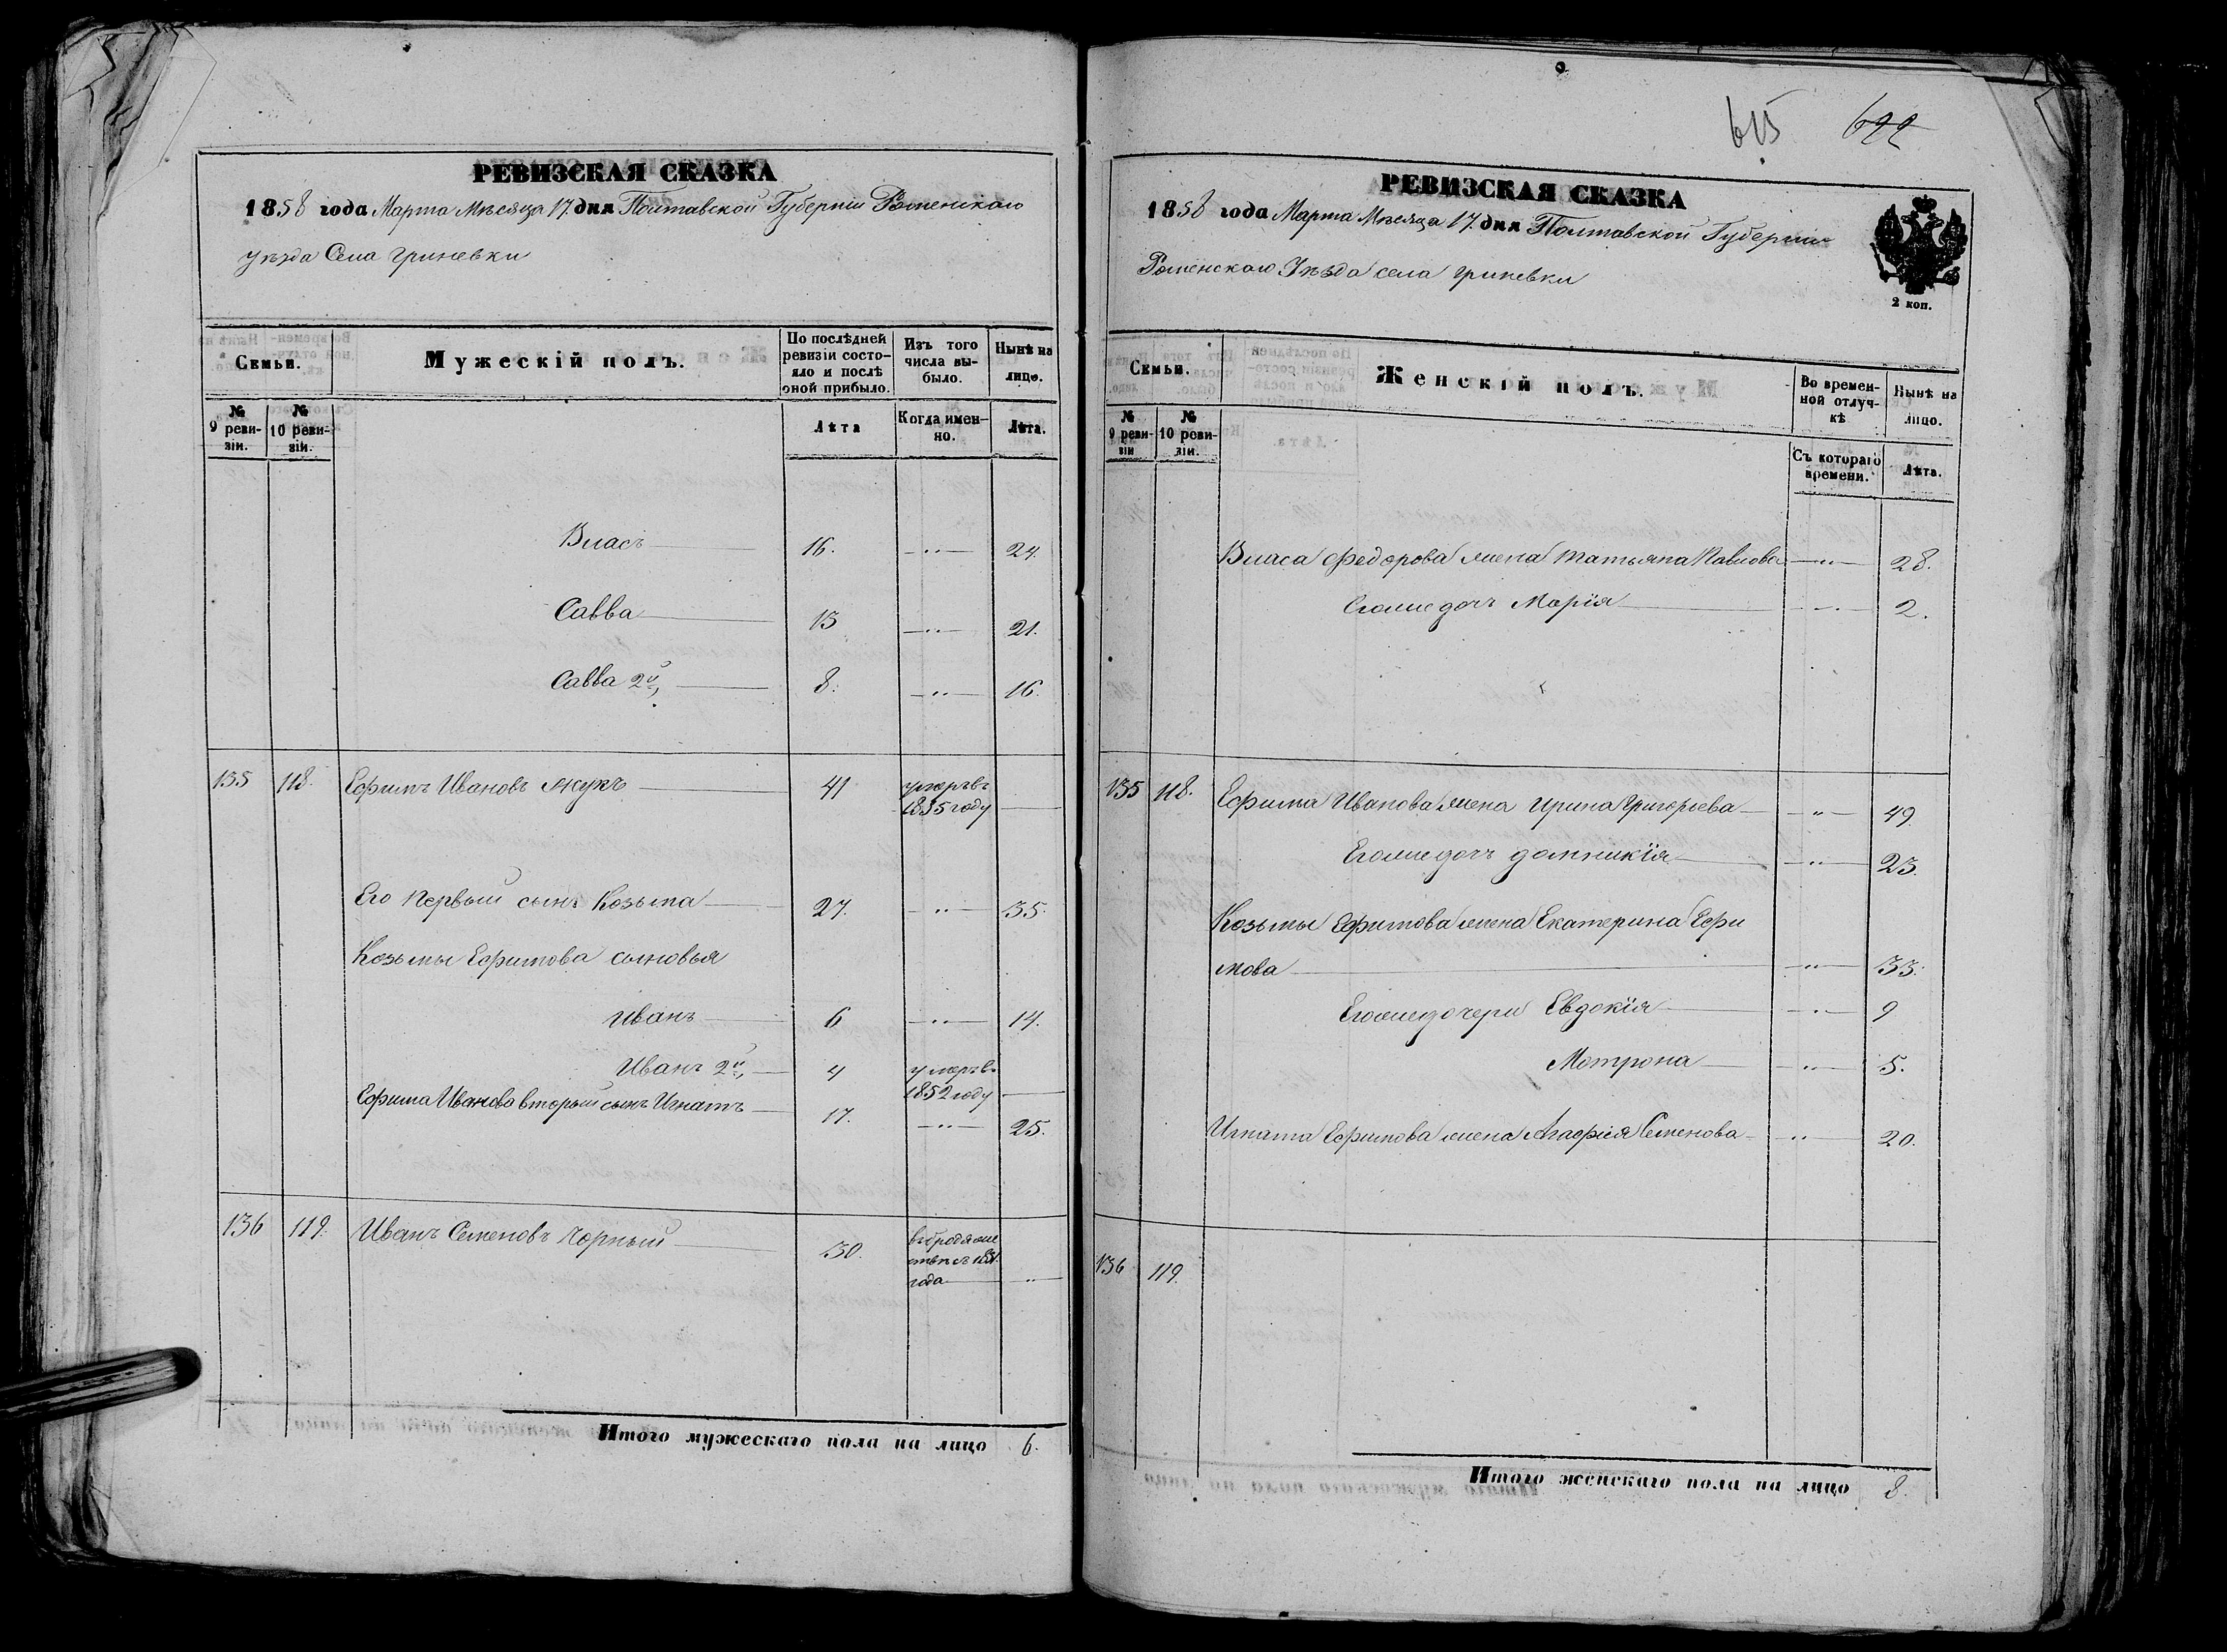 615 622
РЕВИЗСКАЯ СКАЗКА
1858 года Марта Мѣсяца 17. дня Полтавской Губерніи Роменскаго
уѣзда Села Гриневки
Семьи.
Мужескій полъ.
По послѣдней ревизіи состо-
яло и послѣ
оной прибыло.
Изъ того
числа вы-
было.
Нынѣ на
лицо.
№
9 реви-
зіи.
№
10 реви-
зіи.
Лѣта
Когда имен-
но.
Лѣта.
Власъ 16. —〃— 24.
Савва 13 —〃— 21.
Савва 2й, 8. —〃— 16.
135 118. Ефимъ Ивановъ Жукъ 41 умеръ въ
1855 году
Его первый сынъ Козьма 27. —〃— 35.
Козьмы Ефимова сыновья
Иванъ 6 —〃— 14.
Иванъ 2й, 4 умеръ въ
1852 году
Ефима Иванова вторый сынъ Игнатъ 17. —〃— 25.
136 119. Иванъ Семеновъ Чорный 30. въ бродяже
ствѣ съ 1851.
года 〃
Итого мужескаго пола на лицо 6.
РЕВИЗСКАЯ СКАЗКА
1858 года Марта Мѣсяца 17. дня Полтавской Губерніи
Роменскаго Уѣзда села Гриневки
2 коп.
Семьи.
Женскій полъ.
Во времен-
ной отлуч-
кѣ
Нынѣ на
лицо.
№
9 реви-
зіи
№
10 реви-
зіи.
Съ котораго
времени.
Лѣта.
Власа Федорова жена Татьяна Павлова —〃— 28.
Егоже дочь Марія —〃— 2.
135 118. Ефима Иванова жена Ирина Григорьева —〃— 49.
Егоже дочь Домникія —〃— 23.
Козьмы Ефимова жена Екатерина Ефи
мова —〃— 33.
Егоже дочери Евдокія —〃— 9
Мотрона —〃— 5.
Игната Ефимова жена Агафія Семенова 〃 20.
136 119.
Итого женскаго пола на лицо 8.